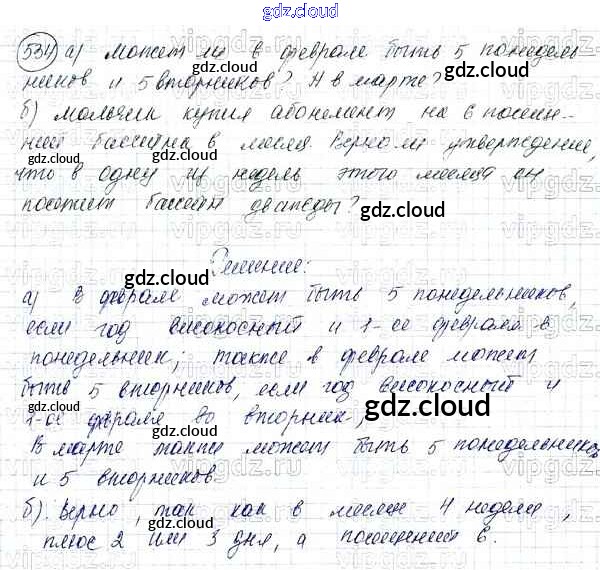 gdz.cloud
534 а) может ли в феврале быть 5 понедель-
ников и 5 вторников? А в марте?
б) мальчик купил абонемент на 6 посеще-
ний бассейна в месяц. Верно ли утверждение,
что в одну из недель этого месяца он
посетит бассейн дважды?
Решение:
а) В феврале может быть 5 понедельников,
если год високосный и 1-ое февраля в
понедельник; также в феврале может
быть 5 вторников, если год високосный и
1-ое февраля во вторник;
В марте также может быть 5 понедельников
и 5 вторников.
б). Верно, так как в месяце 4 недели,
плюс 2 или 3 дня, а посещений 6.